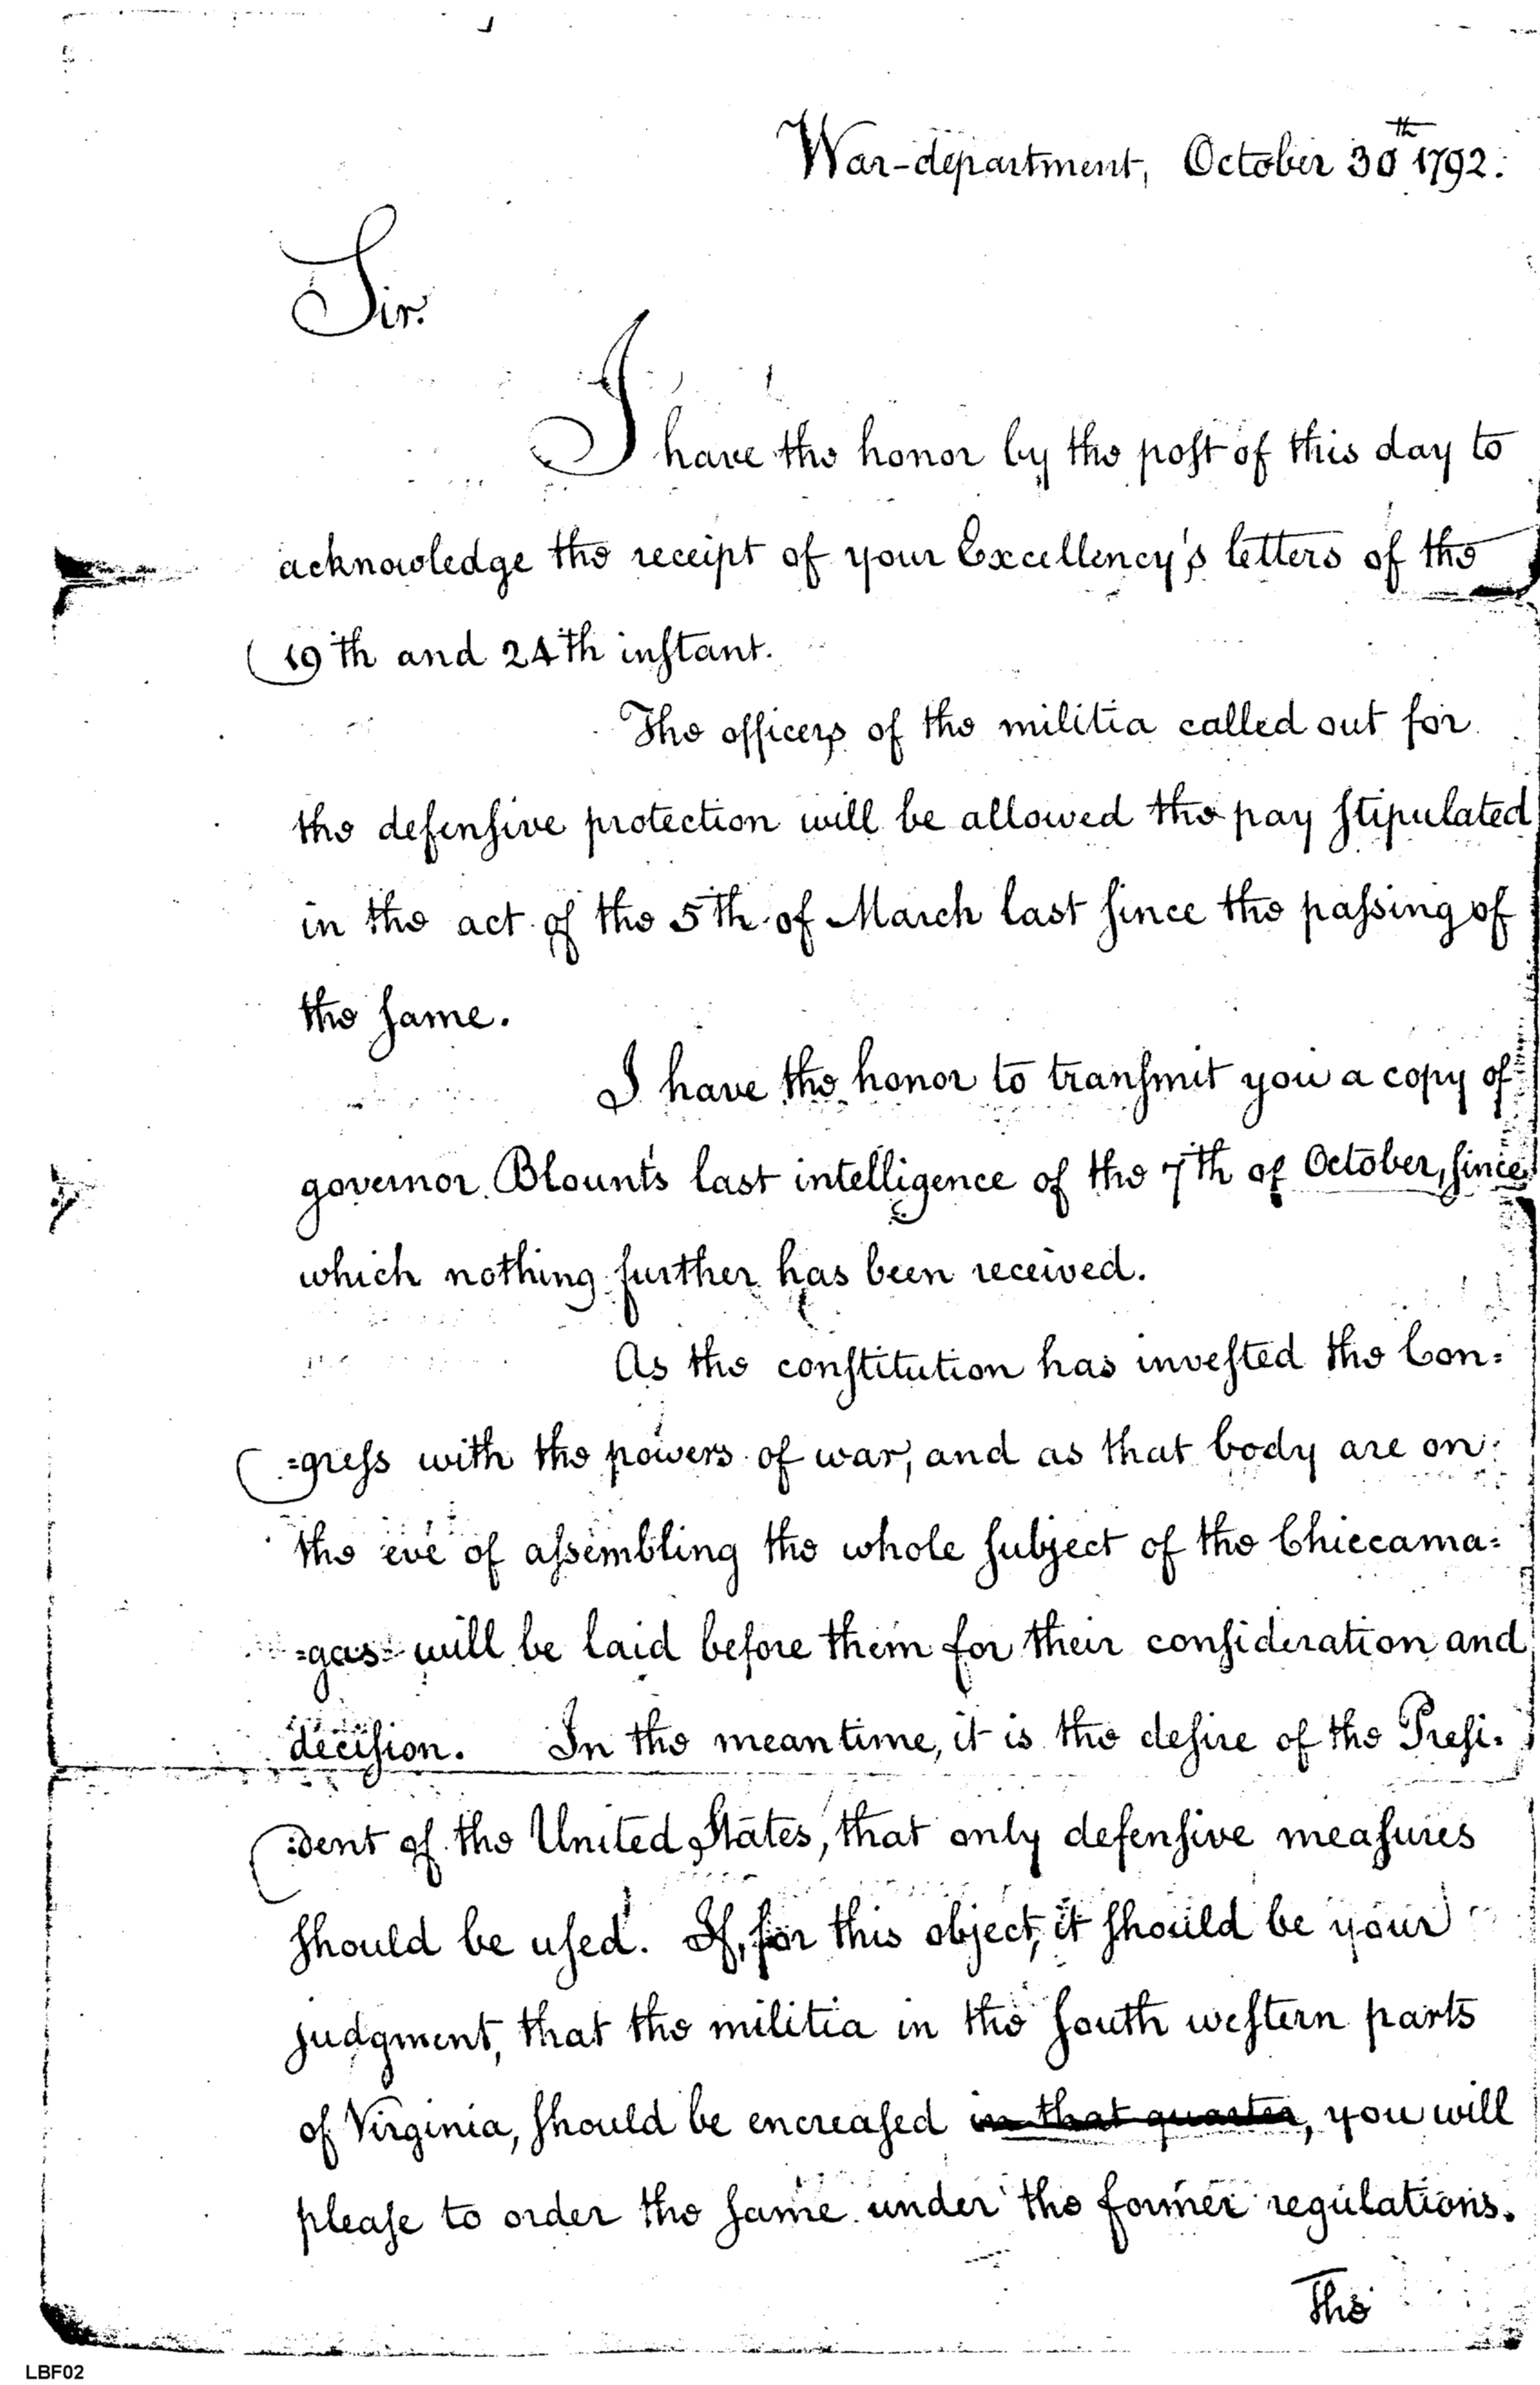 War-department, October 30th 1792.
Sir.
I have the honor by the post of this day to
acknowledge the receipt of your Excellency's letters of the
19th and 24th instant.
The officers of the militia called out for
the defensive protection will be allowed the pay stipulated
in the act of the 5th of March last since the passing of
the same.
I have the honor to transmit you a copy of
governor Blount's last intelligence of the 7th of October, since
which nothing further has been received.
As the constitution has invested the Con=
=gress with the powers of war, and as that body are on
the eve of assembling the whole subject of the Chiccama=
=gas will be laid before them for their consideration and
decision. In the meantime, it is the desire of the Presi=
=dent of the United States, that only defensive measures
should be used. If, for this object, it should be your
judgment, that the militia in the south western parts
of Virginia, should be encreased in that quarter, you will
please to order the same under the former regulations.
The
LBF02